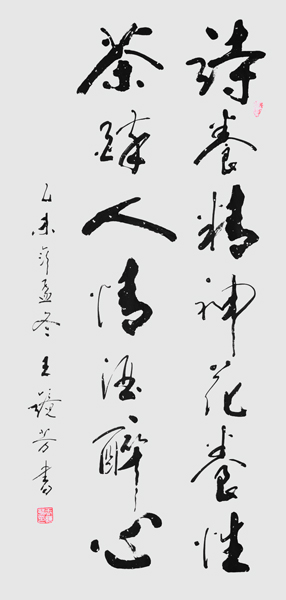 詩養精神花養性
茶踈人情酒醉心
乙未年孟冬王鏡芳書